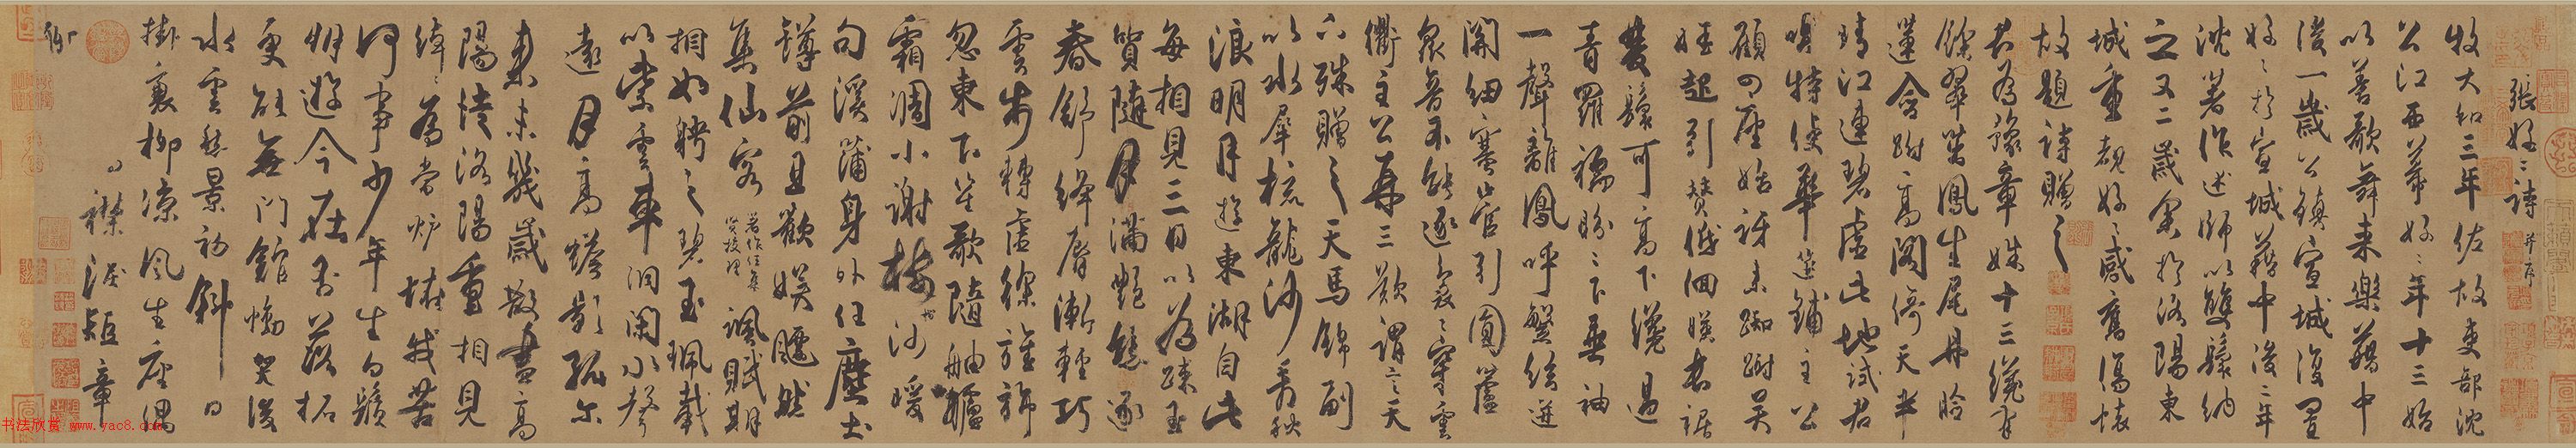 張好好詩并序
牧大和三年佐故吏部沈
公江西幕好好年十三始
以善歌舞來樂籍中
後一歲公鎮宣城復置
好好於宣城籍中後二年
沈著作述師以雙鬟納
之又二歲余於洛陽東
城重覩好好感舊傷懷
故題詩贈之
君為豫章姝十三纔有
餘翠茁鳳生尾丹臉
蓮含跗高閣倚天半
晴江連碧虛此地試君
唱特使華筵鋪主公
顧四座始訝來踟躕吳
娃起引贊低佪映長裾
雙鬟可高下纔過
青羅襦盼盼下垂袖
一聲離鳳呼繁絃迸
關紐塞管引圓蘆
衆音不能逐裊裊穿雲
衢主公再三歎謂言天
下殊贈之天馬錦副
以水犀梳龍沙看秋
浪明月遊東湖自此
每相見三日以為疎玉
質隨月滿艷態逐
春舒絳脣漸輕巧
雲步轉虛徐旌旆
忽東下笙歌隨舳艫
霜凋小謝樹沙暖
句溪蒲身外任塵土
罇前且歡娛飄然
集仙客著作任集賢校理諷賦期
相如聘之碧玉珮載
以紫雲車洞閑水聲
遠月高蟾影孤爾
來未幾歲散盡高
陽徒洛陽重相見
綽綽為當爐怪我苦
何事少年生白鬚
朋遊今在否落拓
更能無門館慟哭後
水雲愁景初斜日
掛衰柳涼風生座隅
襟淚短章
聊
书法欣赏 www.yac8.com